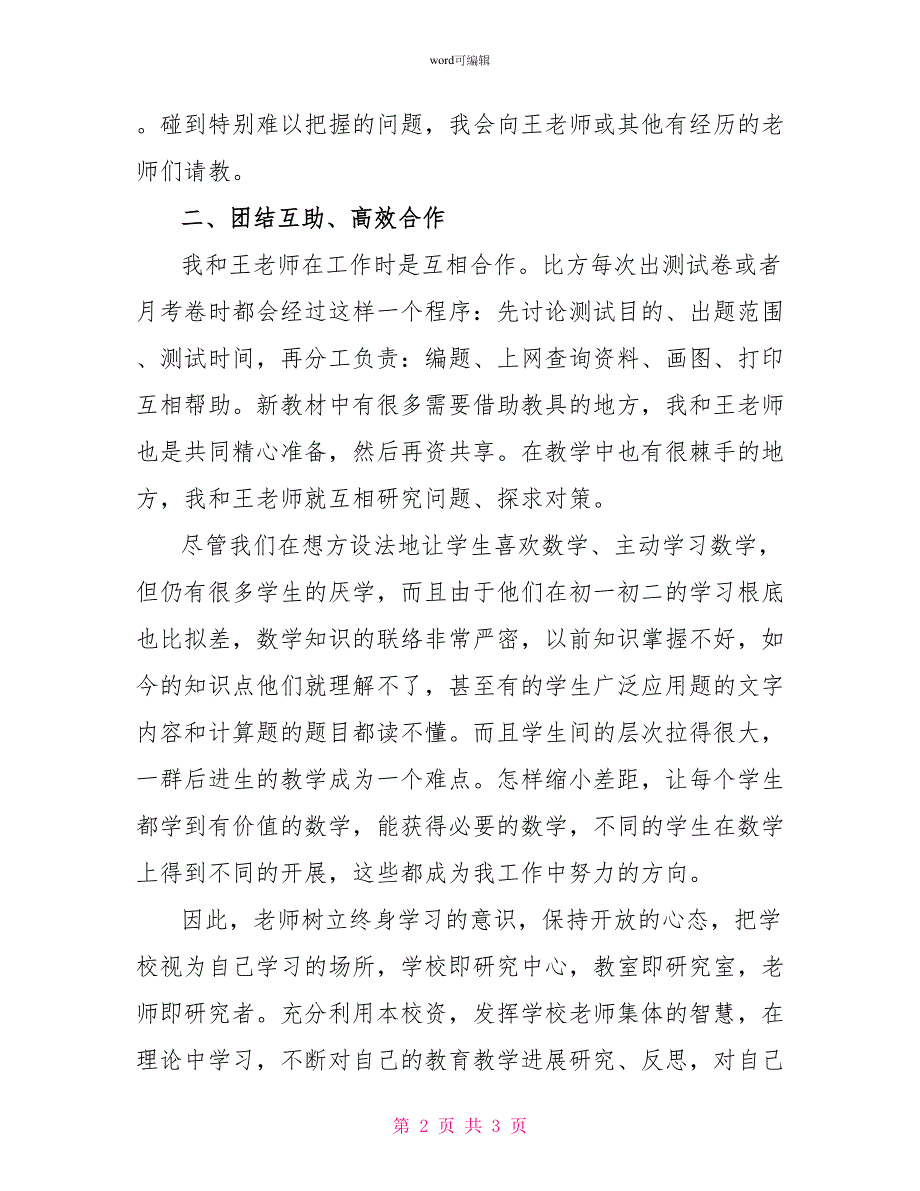 word可编辑
。碰到特别难以把握的问题，我会向王老师或其他有经历的老
师们请教。
二、团结互助、高效合作
我和王老师在工作时是互相合作。比方每次出测试卷或者
月考卷时都会经过这样一个程序：先讨论测试目的、出题范围
、测试时间，再分工负责：编题、上网查询资料、画图、打印
互相帮助。新教材中有很多需要借助教具的地方，我和王老师
也是共同精心准备，然后再资共享。在教学中也有很棘手的地
方，我和王老师就互相研究问题、探求对策。
尽管我们在想方设法地让学生喜欢数学、主动学习数学，
但仍有很多学生的厌学，而且由于他们在初一初二的学习根底
也比拟差，数学知识的联络非常严密，以前知识掌握不好，如
今的知识点他们就理解不了，甚至有的学生广泛应用题的文字
内容和计算题的题目都读不懂。而且学生间的层次拉得很大，
一群后进生的教学成为一个难点。怎样缩小差距，让每个学生
都学到有价值的数学，能获得必要的数学，不同的学生在数学
上得到不同的开展，这些都成为我工作中努力的方向。
因此，老师树立终身学习的意识，保持开放的心态，把学
校视为自己学习的场所，学校即研究中心，教室即研究室，老
师即研究者。充分利用本校资，发挥学校老师集体的智慧，在
理论中学习，不断对自己的教育教学进展研究、反思，对自己
第 2 页 共 3 页